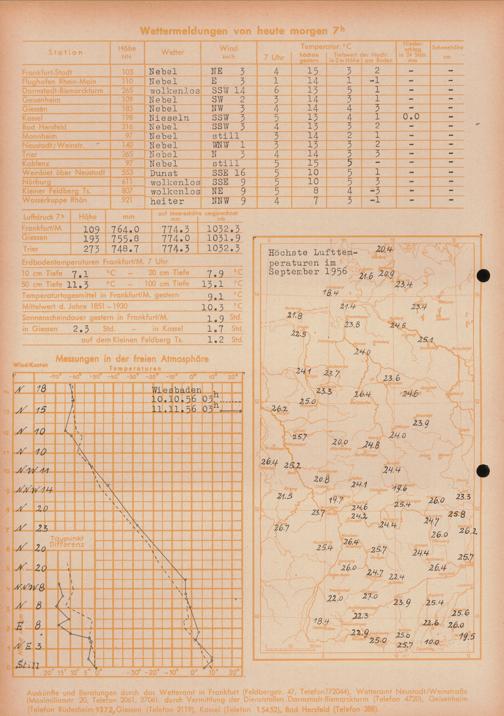 Wettermeldungen von heute morgen 7ʰ
Station Höhe Wetter Wind Temperatur °C Schneehöhe
7 Uhr höchste gestern
Frankfurt-Stadt 103 Nebel NE 3 4 15 3 2 - -
Flughafen Rhein-Main 110 Nebel E 3 1 14 1 -1 - -
Darmstadt-Bismarckturm 265 wolkenlos SSW 14 6 13 5 1 - -
Geisenheim 109 Nebel SW 2 3 14 3 1 - -
Giessen 185 Nebel NW 3 4 14 4 3 - -
Kassel 198 Nieseln SSW 3 5 13 4 1 0.0 -
Bad Hersfeld 216 Nebel SSW 3 4 13 3 2 - -
Mannheim 97 Nebel still 3 14 2 1 - -
Neustadt/Weinstr. 140 Nebel WNW 1 3 13 3 2 - -
Trier 265 Nebel N 3 4 14 3 3 - -
Koblenz 97 Nebel still 5 15 5 - - -
Weinbiet über Neustadt 553 Dunst SSE 16 5 10 5 1 - -
Nürburg 611 wolkenlos SSE 9 5 10 5 3 - -
Kleiner Feldberg Ts. 807 wolkenlos NE 9 5 8 4 -3 - -
Wasserkuppe Rhön 921 heiter NNW 9 4 7 3 -1 - -
Luftdruck 7ʰ Höhe mm
Frankfurt/M 109 764.0 774.3 1032.3
Giessen 193 755.8 774.0 1031.9
Trier 273 748.7 774.3 1032.3
Erdbodentemperaturen Frankfurt/M. 7 Uhr
10 cm Tiefe 7.1 °C – 20 cm Tiefe 7.9 °C
50 cm Tiefe 11.3 °C – 100 cm Tiefe 13.1 °C
Temperaturtagesmittel in Frankfurt/M. gestern 9.1 °C
Mittelwert d. Jahre 1851–1930 10.3 °C
Sonnenscheindauer gestern in Frankfurt/M. 1.9 Std.
in Giessen 2.3 Std. – in Kassel 1.7 Std.
auf dem Kleinen Feldberg Ts. 1.2 Std.
Messungen in der freien Atmosphäre
Wind/Knoten Temperaturen
Wiesbaden
10.10.56 03ʰ
11.11.56 03ʰ
N 18
N 15
N 10
N 10
NNW 11
NNW 14
N 20
N 23
N 20
N 20
NNW 8
N 8
E 8
NE 3
Still
Taupunkt
Differenz
Höchste Lufttem-
peraturen im
September 1956
20.4
21.6 20.9
23.4
18.4
21.4 23.4
21.8
23.8 24.5
22.5 25.1
24.0
24.1 23.7 23.6
23.3 26.4 24.6
25.0
26.2
23.9
25.7 20.0 24.8 24.0
26.4 25.2 24.4
20.8 24.1 19.6
21.5 19.7 25.4 26.0 23.3
23.7 24.6 25.8
24.2 24.7
26.7 24.4 26.0 26.2
26.4
25.4 25.7 24.4 25.7
26.0 24.7 22.4 26.4
22.0 27.0 23.9 25.4
22.3 25.6
18.4 22.6 26.0
22.9 25.0 19.5
25.0 25.7 10.0
Auskünfte und Beratungen durch das Wetteramt in Frankfurt (Feldbergstr. 47, Telefon 772044), Wetteramt Neustadt/Weinstraße
(Maximilianstr. 20, Telefon 2061, 3706), durch Vermittlung der Dienststellen Darmstadt-Bismarckturm (Telefon 4720), Geisenheim
(Telefon Rüdesheim 1372), Giessen (Telefon 2119), Kassel (Telefon 15452), Bad Hersfeld (Telefon 388).